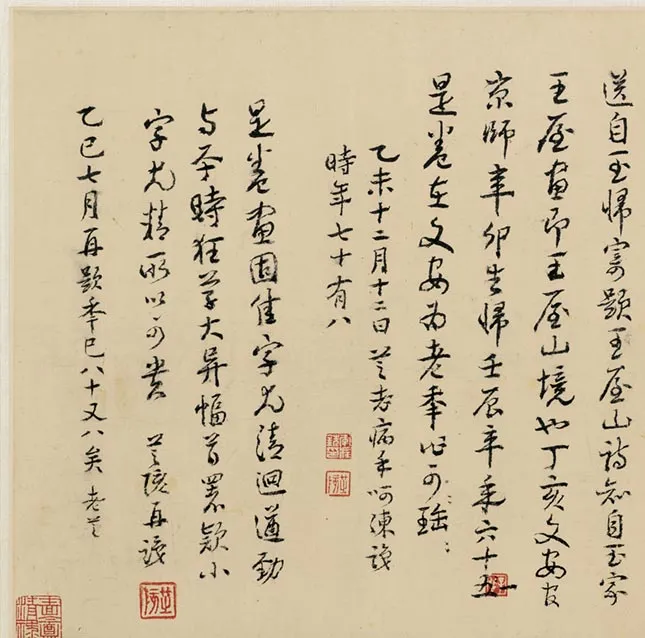 送自玉歸寄題王屋山詩知自玉家
王屋畫即王屋山境也丁亥文安官
京師辛卯告歸壬辰卒年六十五一
是卷在文安為老年作可珤
乙未十二月十二日芝老病手呵凍識
時年七十有八
是卷畫固佳字尤清迴遒勁
与平時狂草大異幅首署款小
字尤精所以可貴 芝陔再識
乙巳七月再題年已八十又八矣 老芝